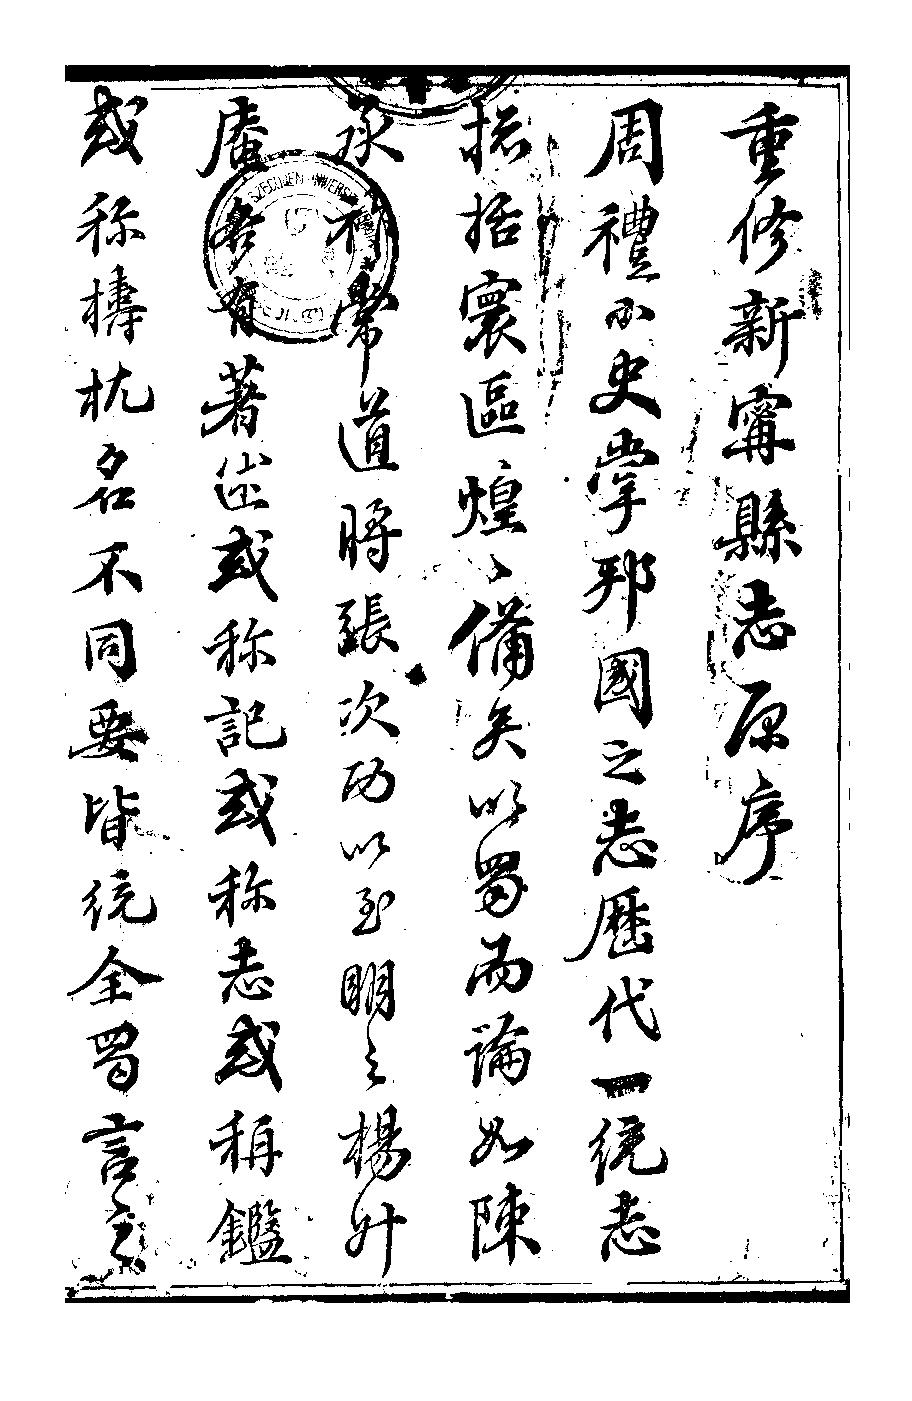 重修新寗縣志原序
周禮小史掌邦國之志歷代一統志
括寰區煌〻備矣以蜀而論如陳
承祚常道將張次功以至明之楊升
庵各有著述或称記或称志或稱鑑
或称檮杌名不同要皆統全蜀言之